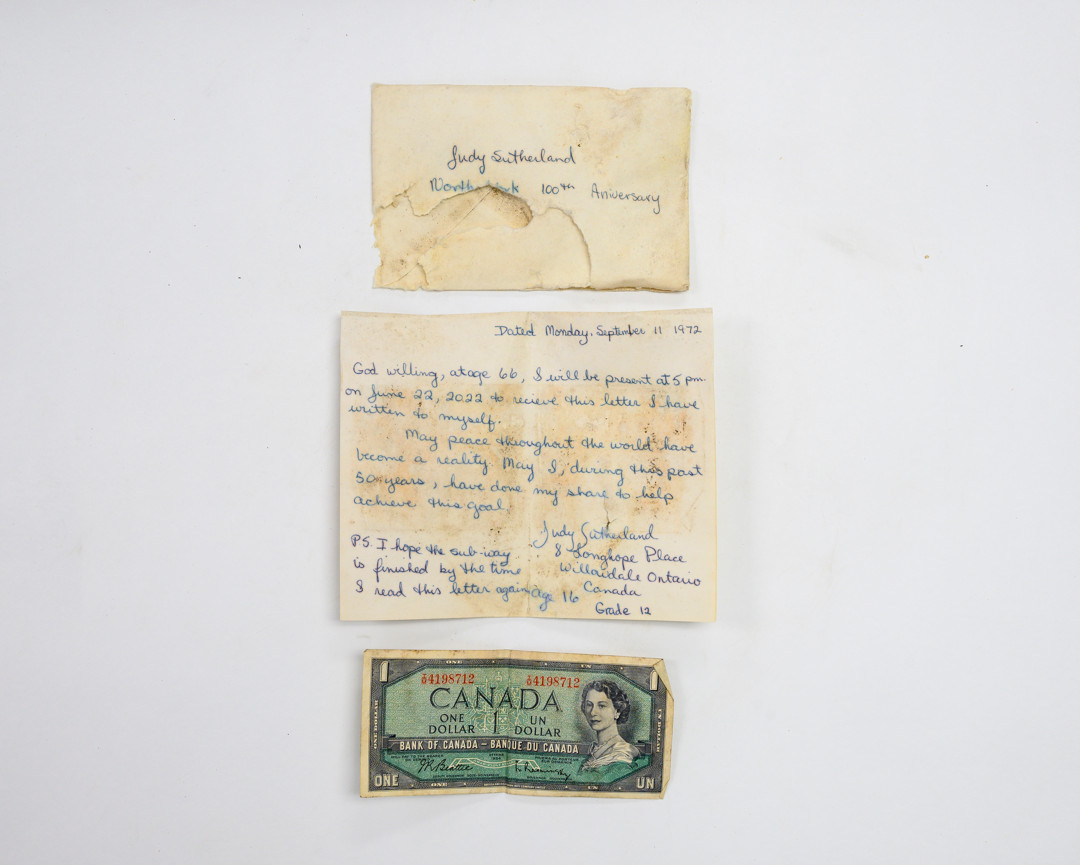 Judy Sutherland
North York 100th Aniversary
Dated Monday, September 11 1972
God willing, at age 66, I will be present at 5 pm.
on June 22, 2022 to recieve this letter I have
written to myself.
May peace throughout the world have
become a reality. May I, during this past
50 years, have done my share to help
achieve this goal.
Judy Sutherland
8 Longhope Place
Willowdale Ontario
Canada
Age 16
Grade 12
P.S. I hope the sub-way
is finished by the time
I read this letter again
ONE UN
1 4198712 4198712 1
CANADA
ONE DOLLAR 1 UN DOLLAR
BANK OF CANADA – BANQUE DU CANADA
ONE UN
ONE DOLLAR
UN DOLLAR